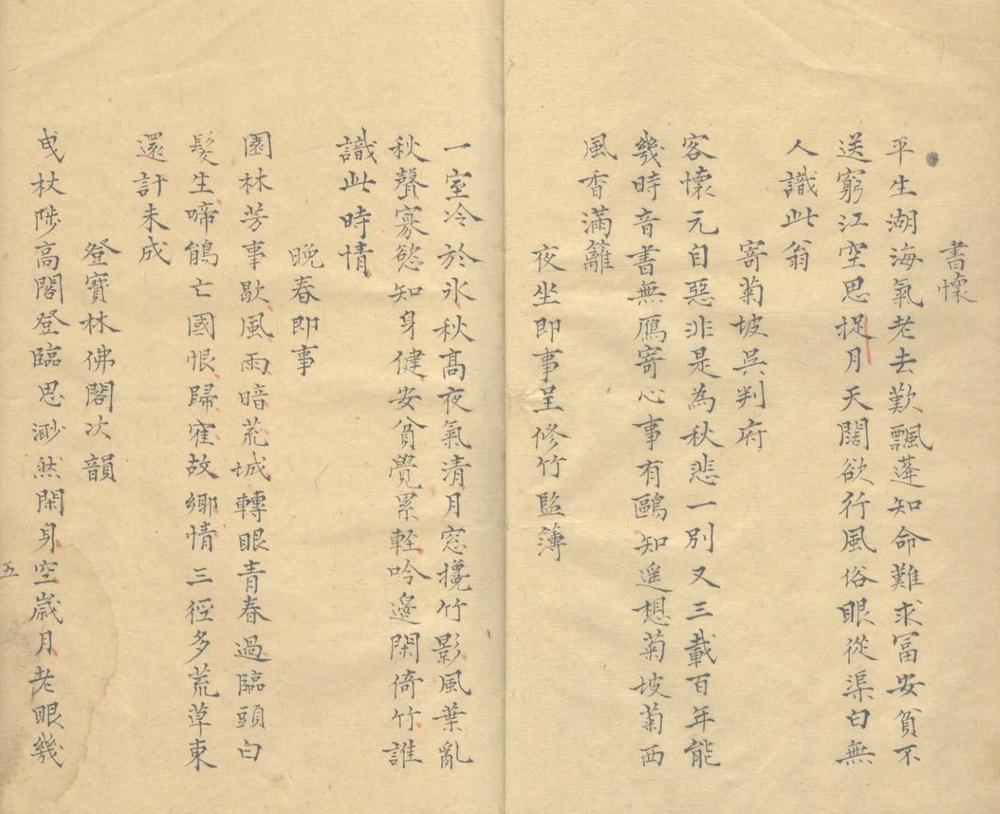 書懷
平生湖海氣老去歎飄蓬知命難求冨安貧不
送窮江空思捉月天闊欲行風俗眼從渠白無
人識此翁
寄菊坡吳判府
客懷元自惡非是為秋悲一別又三載百年能
幾時音書無鴈寄心事有鷗知遥想菊坡菊西
風香滿籬
夜坐即事呈修竹監簿
一室冷於氷秋髙夜氣清月窓攙竹影風葉亂
秋聲寡慾知身健安貧覺累軽吟邊閑倚竹誰
識此時情
晚春即事
園林芳事歇風雨暗荒城轉眼青春過臨頭白
髮生啼鵑亡國恨歸寉故鄉情三徑多荒草東
還計未成
登寳林佛閣次韻
曳杖陟高閣登臨思渺然閑身空嵗月老眼幾
五